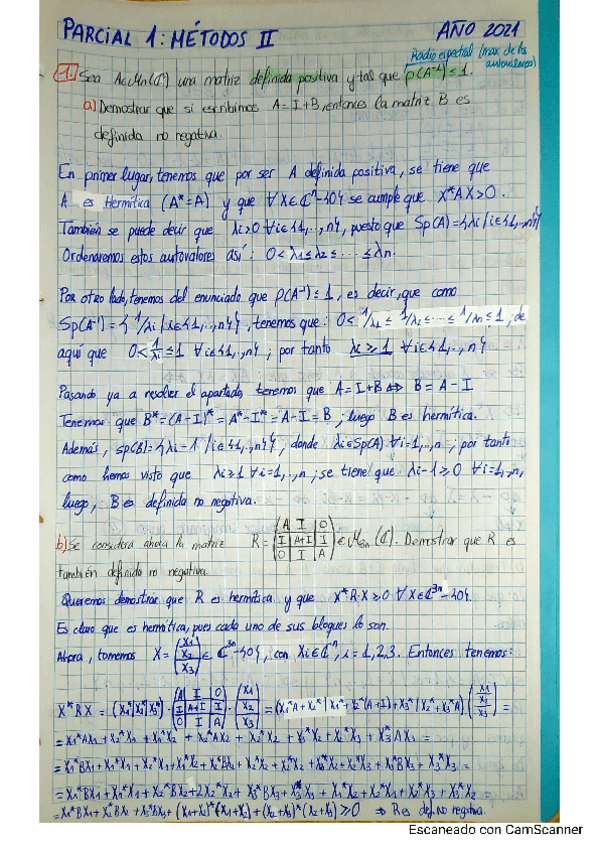 PARCIAL 1: MÉTODOS II AÑO 2021
Radio espectral (max de los autovalores)
1. Sea A∈Mn(ℂ) una matriz definida positiva y tal que ρ(A⁻¹)≤1.
a) Demostrar que si escribimos A=I+B, entonces la matriz B es
definida no negativa.
En primer lugar, tenemos que por ser A definida positiva, se tiene que
A es Hermítica (A*=A) y que ∀X∈ℂⁿ-{0} se cumple que X*AX>0.
También se puede decir que λi>0 ∀i∈{1,..,n}, puesto que Sp(A)={λi/i∈{1,..,n}}
Ordenaremos estos autovalores así: 0<λ1≤λ2≤...≤λn.
Por otro lado, tenemos del enunciado que ρ(A⁻¹)≤1, es decir, que como
Sp(A⁻¹)={1/λi | i∈{1,..,n}}, tenemos que: 0<1/λ1≤1/λ2≤...≤1/λn≤1, de
aquí que 0<1/λi≤1 ∀i∈{1,..,n}; por tanto λi≥1 ∀i∈{1,..,n}
Pasando ya a resolver el apartado, tenemos que A=I+B ⇔ B=A-I
Tenemos que B*=(A-I)*=A*-I*=A-I=B, luego B es hermítica.
Además, sp(B)={λi-1 / i∈{1,..,n}}, donde λi∈Sp(A) ∀i=1,..,n; por tanto
como hemos visto que λi≥1 ∀i=1,..,n; se tiene que λi-1≥0 ∀i=1,..,n,
luego, B es definida no negativa.
b) Se considera ahora la matriz R=(A I O / I A+I I / O I A)∈M3n(ℂ). Demostrar que R es
también definida no negativa.
Queremos demostrar que R es hermítica y que X*·R·X≥0 ∀X∈ℂ³ⁿ-{0}.
Es claro que es hermítica, pues cada uno de sus bloques lo son.
Ahora, tomemos X=(X1 / X2 / X3)∈ℂ³ⁿ-{0}, con Xi∈ℂⁿ, i=1,2,3. Entonces tenemos:
X*RX=(X1*|X2*|X3*)·(A I O / I A+I I / O I A)·(X1 / X2 / X3)=(X1*A+X2*|X1*+X2*(A+I)+X3*|X2*+X3*A)(X1 / X2 / X3)=
=X1*AX1+X2*X1+X1*X2+X2*AX2+X2*X2+X3*X2+X2*X3+X3*AX3=
=X1*BX1+X1*X1+X2*X1+X1*X2+X2*BX2+X2*X2+X2*X2+X3*X2+X2*X3+X3*BX3+X3*X3=
=X1*BX1+X1*X1+X2*BX2+2X2*X2+X3*BX3+X3*X3+X1*X2+X2*X1+X2*X3+X3*X2=
=X1*BX1+X2*BX2+X3*BX3+(X1+X2)*(X1+X2)+(X2+X3)*(X2+X3)≥0 ⇒ R es def. no negativa.
Escaneado con CamScanner